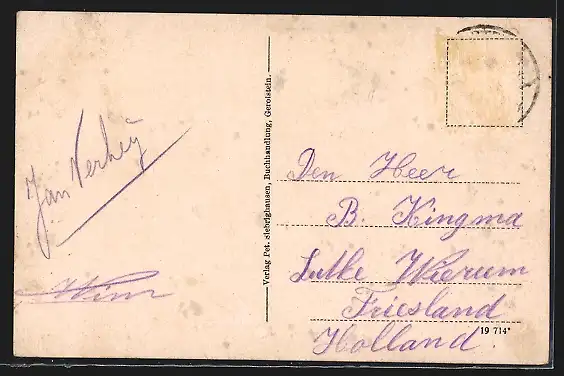 Jan Verhey
Wim
Verlag Pet. Siebrighausen, Buchhandlung, Gerolstein.
Den Heer
B. Kingma
Lutke Wierum
Friesland
Holland.
19 714*